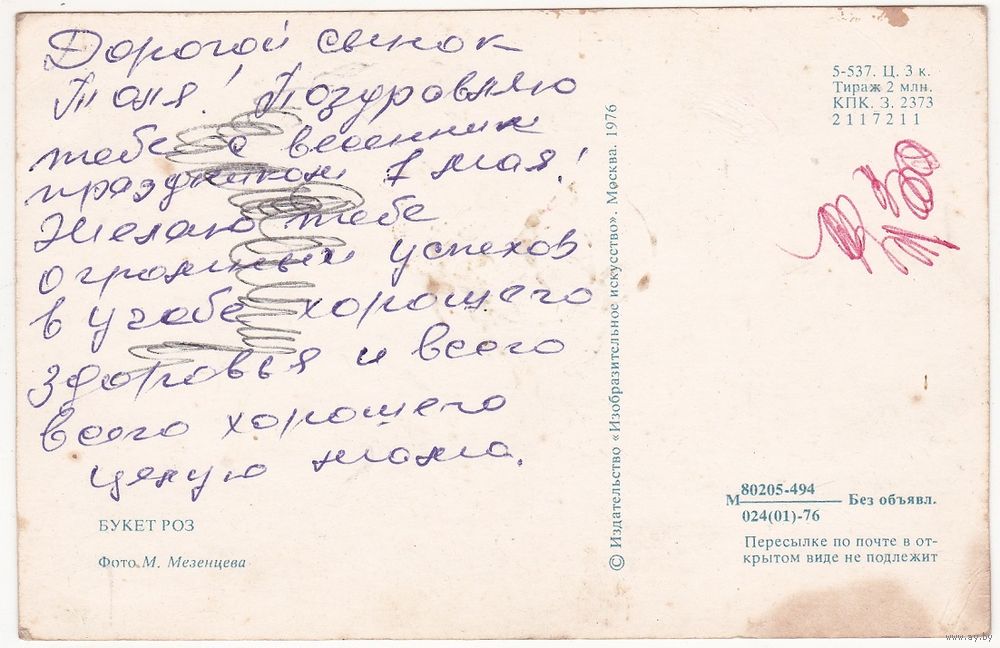 Дорогой сынок
Толя! Поздравляю
тебе с весенним
праздником 1 мая!
Желаю тебе
огромных успехов
в учобе хорошего
здоровья и всего
всего хорошего
целую мама.
БУКЕТ РОЗ
Фото М. Мезенцева
© Издательство «Изобразительное искусство». Москва. 1976
5-537. Ц. 3 к.
Тираж 2 млн.
КПК. З. 2373
2117211
М 80205-494
024(01)-76
Без объявл.
Пересылке по почте в от-
крытом виде не подлежит
www.ay.by